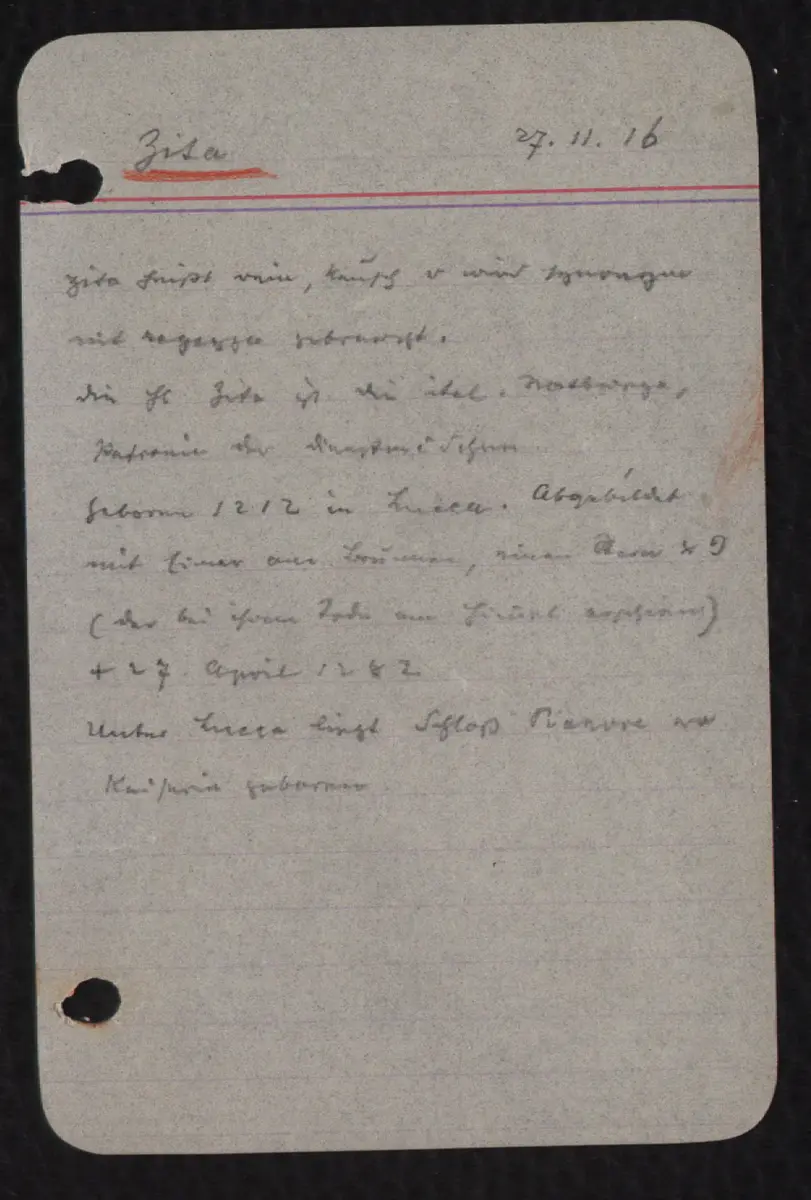 Zita 27. 11. 16
Zita heißt rein, keusch u wird synonym
mit ragazza gebraucht.
die hl Zita ist die ital. Notburga,
Patronin der Dienstmädchen
Geboren 1212 in Lucca. Abgebildet
mit Eimer am Brunnen, einen Stern
(der bei ihrem Tode am Himmel erschien)
+ 27. April 1282
Unter Lucca liegt Schloß Pianore wo
Kaiserin geboren